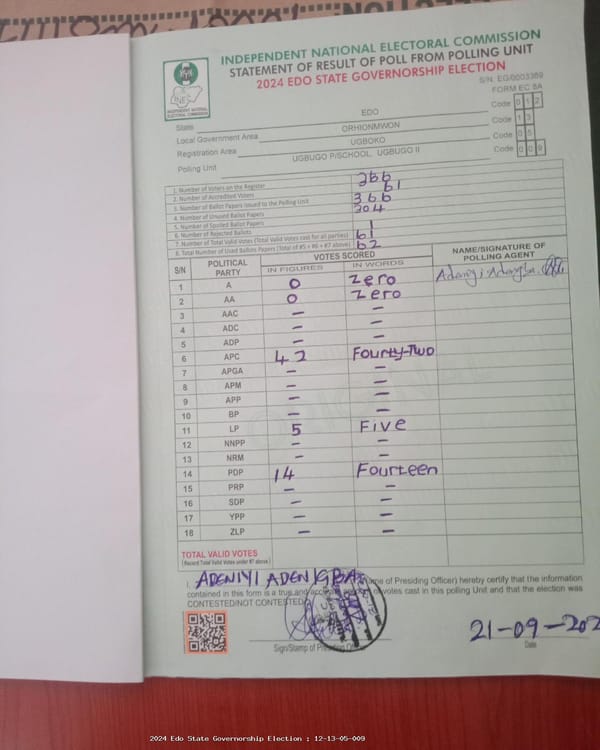 INDEPENDENT NATIONAL ELECTORAL COMMISSION
STATEMENT OF RESULT OF POLL FROM POLLING UNIT
2024 EDO STATE GOVERNORSHIP ELECTION
S/N. EG/0003369
FORM EC 8A
INEC
INDEPENDENT NATIONAL ELECTORAL COMMISSION
State EDO Code 0 1 2
Local Government Area ORHIONMWON Code 1 3
Registration Area UGBOKO Code 0 5
Polling Unit UGBUGO P/SCHOOL, UGBUGO II Code 0 0 9
1. Number of Voters on the Register 366
2. Number of Accredited Voters 61
3. Number of Ballot Papers Issued to the Polling Unit 366
4. Number of Unused Ballot Papers 304
5. Number of Spoiled Ballot Papers
6. Number of Rejected Ballots 1
7. Number of Total Valid Votes (Total Valid Votes cast for all parties) 61
8. Total Number of Used Ballot Papers (Total of #5 + #6 + #7 above) 62
S/N POLITICAL PARTY VOTES SCORED NAME/SIGNATURE OF POLLING AGENT
IN FIGURES IN WORDS
1 A 0 Zero
2 AA 0 Zero
3 AAC - -
4 ADC - -
5 ADP - -
6 APC 42 Fourty-Two
7 APGA - -
8 APM - -
9 APP - -
10 BP - -
11 LP 5 Five
12 NNPP - -
13 NRM - -
14 PDP 14 Fourteen
15 PRP - -
16 SDP - -
17 YPP - -
18 ZLP - -
TOTAL VALID VOTES
(Record Total Valid Votes under #7 above)
I, ADENIYI ADENIGBA (Name of Presiding Officer) hereby certify that the information
contained in this form is a true and accurate votes cast in this polling Unit and that the election was
CONTESTED/NOT CONTESTED
Sign/Stamp of Presiding Officer
21-09-202
Date
2024 Edo State Governorship Election : 12-13-05-009